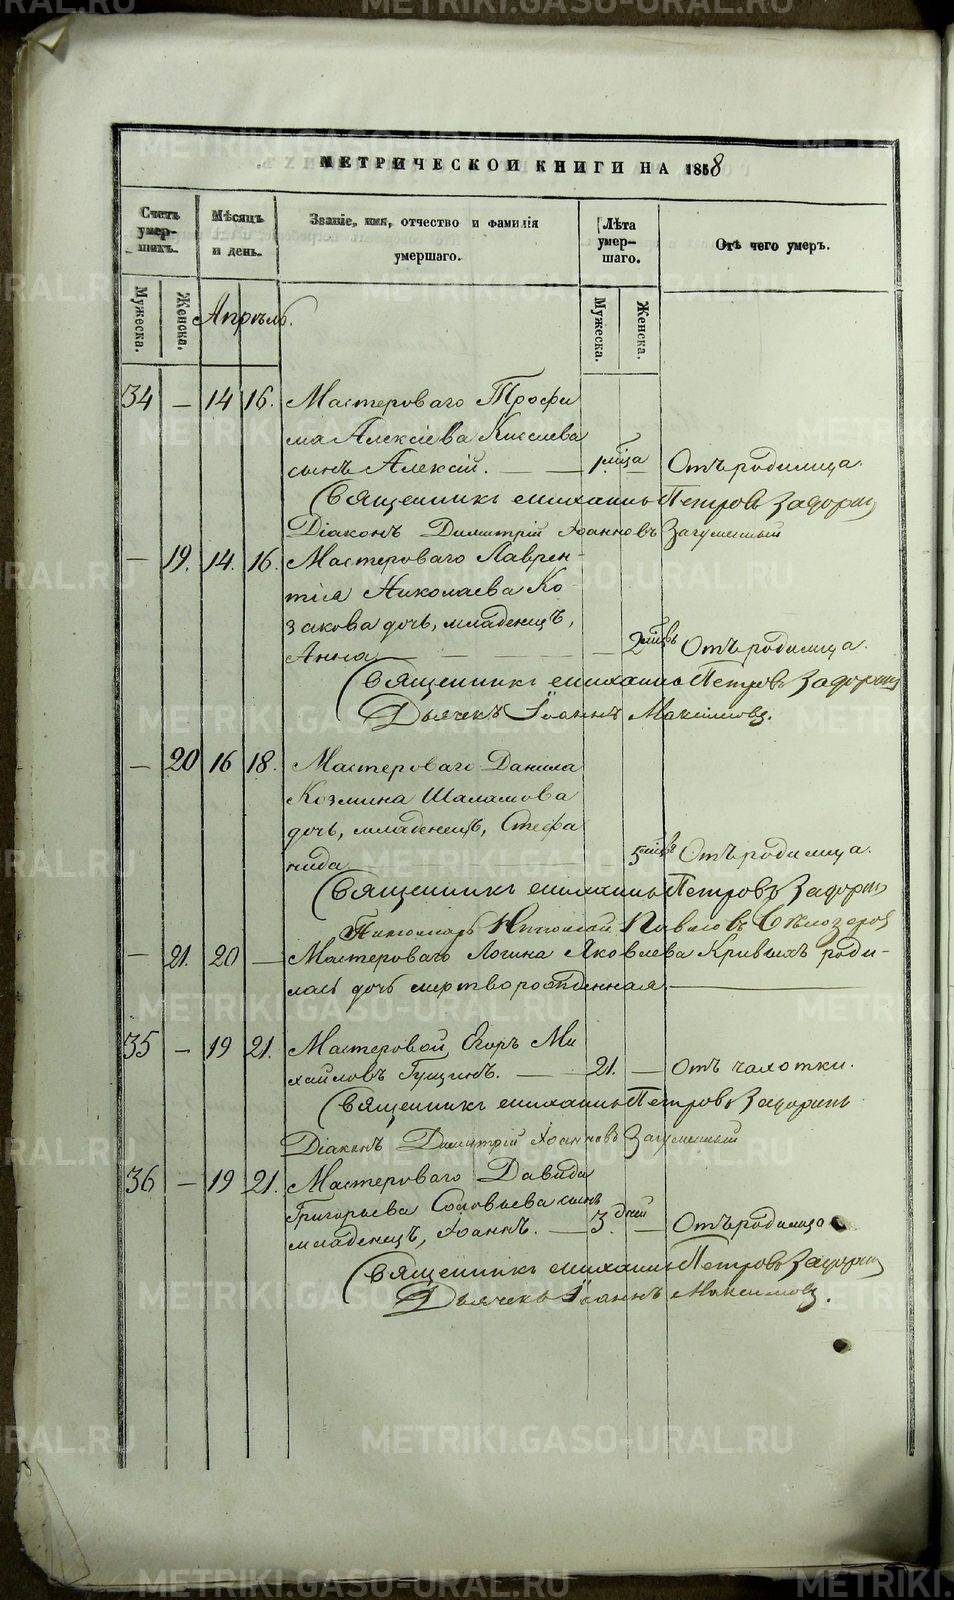 МЕТРИЧЕСКОЙ КНИГИ НА 1858
Счетъ умер-шихъ.
Мѣсяцъ и день.
Званіе, имя, отчество и фамилія умершаго.
Лѣта умер-шаго.
Отъ чего умеръ.
Мужеска.
Женска.
Апрѣль.
Мужеска.
Женска.
34 — 14 16. Мастероваго Трофи
ма Алексіева Киселева
сынъ Алексій. — 1 мѣсяца — Отъ родимца.
Священникъ Михаилъ Петровъ Задоринъ
Діаконъ Димитрій Іоанновъ Загуменный
— 19. 14. 16. Мастероваго Лаврен-
тія Николаева Ко-
закова дочь, младенецъ,
Анна — — — 2 мѣсяцовъ Отъ родимца.
Священникъ Михаилъ Петровъ Задоринъ
Дьячекъ Іоаннъ Максимовъ.
— 20 16 18. Мастероваго Данила
Козмина Шаламова
дочь, младенецъ, Стефа
нида — 5 мѣсяцовъ Отъ родимца.
Священникъ Михаилъ Петровъ Задоринъ
Пономарь Николай Павловъ Бѣлозеровъ
— 21. 20 — Мастероваго Логина Яковлева Кривыхъ роди-
лась дочь мертворожденная —
35 — 19 21. Мастеровой, Егоръ Ми
хайловъ Гущинъ. — 21. — Отъ чахотки.
Священникъ Михаилъ Петровъ Задоринъ
Діаконъ Димитрій Іоанновъ Загуменный
36 — 19 21. Мастероваго Давида
Григорьева Соловьева сынъ
младенецъ, Іоаннъ. — 3. дней — Отъ родимца
Священникъ Михаилъ Петровъ Задоринъ
Дьячекъ Іоаннъ Максимовъ.
METRIKI.GASO-URAL.RU